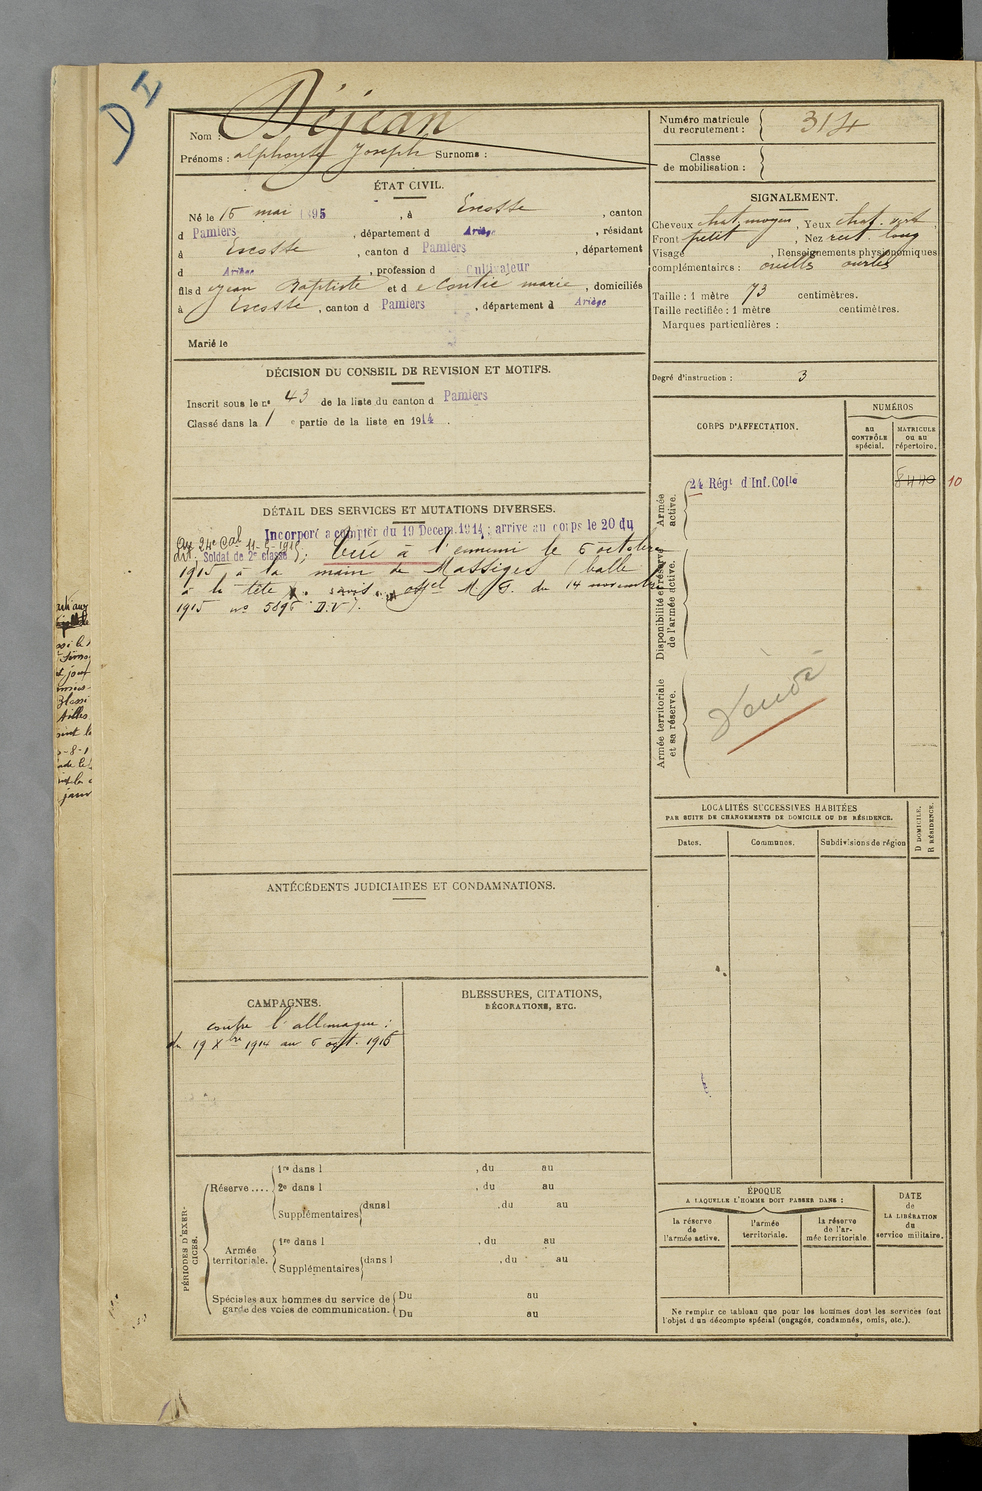 DI
Nom : Déjean
Prénoms : alphonse Joseph Surnoms :
Numéro matricule
du recrutement : 314
Classe
de mobilisation :
ÉTAT CIVIL.
Né le 15 mai 1895, à Escosse, canton
d Pamiers, département d Ariège, résidant
à Escosse, canton d Pamiers, département
d Ariège, profession d Cultivateur
fils d Jean Baptiste et d e marie, domiciliés
à Escosse, canton d Pamiers, département d Ariège
Marié le
SIGNALEMENT.
Cheveux chat. moyen, Yeux chat. vert,
Front petit, Nez rect. long
Visage , Renseignements physionomiques
complémentaires : oreilles ourlées
Taille : 1 mètre 73 centimètres.
Taille rectifiée : 1 mètre centimètres.
Marques particulières :
Degré d'instruction : 3
DÉCISION DU CONSEIL DE REVISION ET MOTIFS.
Inscrit sous le n° 43 de la liste du canton d Pamiers
Classé dans la 1 e partie de la liste en 1914.
CORPS D'AFFECTATION.
NUMÉROS
au
CONTRÔLE
spécial.
MATRICULE
ou au
répertoire.
Armée
active.
24 Régt d'Inf. Colle
8440
10
Disponibilité et réserve
de l'armée active.
Armée territoriale
et sa réserve.
DÉTAIL DES SERVICES ET MUTATIONS DIVERSES.
Incorporé a compter du 19 Decem. 1914 ; arrive au corps le 20 du
au 24e Cal 11-5-1915
dit ; Soldat de 2e classe ; tué à l'ennemi le 5 octobre
1915 à la main de Massiges (balle
à la tête off el M G. du 14 novembre
1915 no 5895 D.V).
LOCALITÉS SUCCESSIVES HABITÉES
PAR SUITE DE CHANGEMENTS DE DOMICILE OU DE RÉSIDENCE.
Dates.
Communes.
Subdivisions de région
D DOMICILE.
R RÉSIDENCE.
ANTÉCÉDENTS JUDICIAIRES ET CONDAMNATIONS.
CAMPAGNES.
contre l'allemagne :
du 19 Xbre 1914 au 5 oct. 1915
BLESSURES, CITATIONS,
DÉCORATIONS, ETC.
PÉRIODES D'EXER-
CICES.
Réserve ....
1re dans l , du au
2e dans l , du au
Supplémentaires dans l , du au
Armée
territoriale.
1re dans l , du au
Supplémentaires dans l , du au
Spéciales aux hommes du service de
garde des voies de communication.
Du au
Du au
ÉPOQUE
A LAQUELLE L'HOMME DOIT PASSER DANS :
la réserve
de
l'armée active.
l'armée
territoriale.
la réserve
de l'ar-
mée territoriale.
DATE
de
LA LIBÉRATION
du
service militaire.
Ne remplir ce tableau que pour les hommes dont les services font
l'objet d'un décompte spécial (engagés, condamnés, omis, etc.).